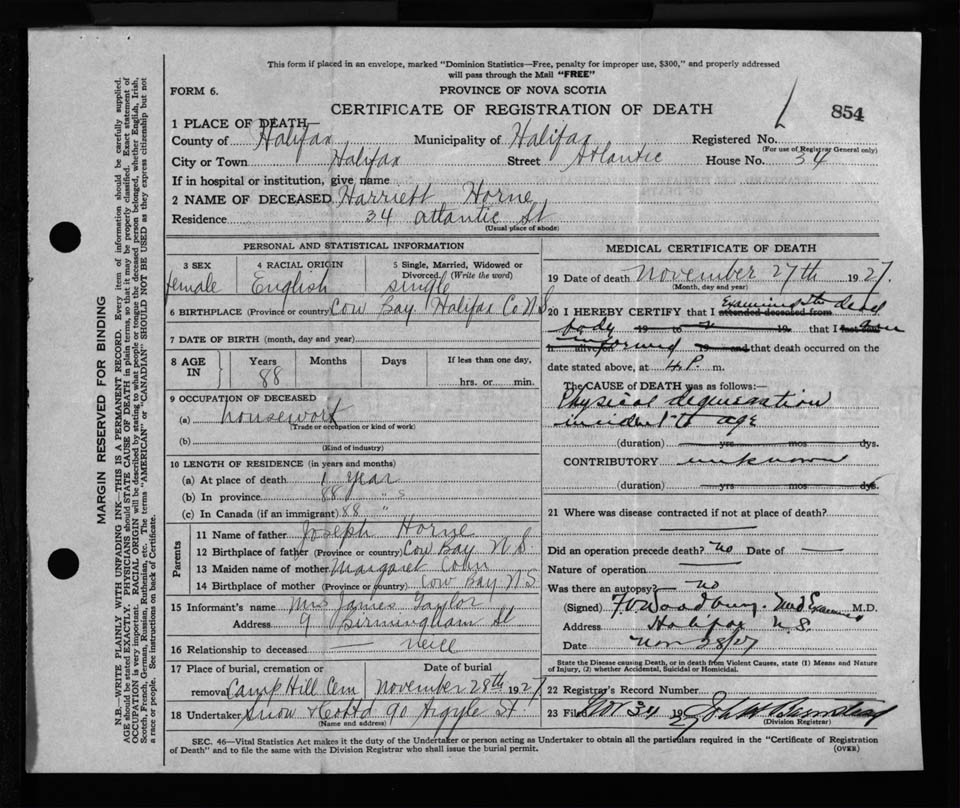 This form if placed in an envelope, marked "Dominion Statistics—Free, penalty for improper use, $300," and properly addressed
will pass through the Mail "FREE"
FORM 6.
PROVINCE OF NOVA SCOTIA
CERTIFICATE OF REGISTRATION OF DEATH
854
1 PLACE OF DEATH
County of Halifax Municipality of Halifax Registered No.
(For use of Registrar General only)
City or Town Halifax Street Atlantic House No. 34
If in hospital or institution, give name
2 NAME OF DECEASED Harriett Horne
Residence 34 Atlantic St
(Usual place of abode)
PERSONAL AND STATISTICAL INFORMATION
3 SEX 4 RACIAL ORIGIN 5 Single, Married, Widowed or
Divorced. (Write the word)
female English single
6 BIRTHPLACE (Province or country) Cow Bay Halifax Co N.S
7 DATE OF BIRTH (month, day and year)
8 AGE IN Years Months Days If less than one day,
88 hrs. or min.
9 OCCUPATION OF DECEASED
(a) housework
(Trade or occupation or kind of work)
(b)
(Kind of industry)
10 LENGTH OF RESIDENCE (in years and months)
(a) At place of death 1 year
(b) In province 88 " s
(c) In Canada (if an immigrant) 88 "
Parents
11 Name of father Joseph Horne
12 Birthplace of father (Province or country) Cow Bay N.S.
13 Maiden name of mother Margaret
14 Birthplace of mother (Province or country) Cow Bay N S
15 Informant's name Mrs James Taylor
Address 9 Birmingham St
16 Relationship to deceased — neice
17 Place of burial, cremation or Date of burial
removal Camp Hill Cem November 28th 1927
18 Undertaker Snow & Co Ltd 90 Argyle St
(Name and address)
MEDICAL CERTIFICATE OF DEATH
19 Date of death November 27th 1927.
(Month, day and year)
20 I HEREBY CERTIFY that I attended deceased from Examined the dead
body 19 to 19 that I last saw
h alive on informed 19 and that death occurred on the
date stated above, at 4 P. m.
The CAUSE OF DEATH was as follows:—
Physical degeneration
incident to age
(duration) yrs mos dys.
CONTRIBUTORY unknown
(duration) yrs mos dys.
21 Where was disease contracted if not at place of death?
Did an operation precede death? no Date of —
Nature of operation
Was there an autopsy? — no
(Signed) Woodbury. Med Examiner M.D.
Address Halifax N.S.
Date Nov 28/27
State the Disease causing Death, or in death from Violent Causes, state (1) Means and Nature
of Injury, (2) whether Accidental, Suicidal or Homicidal.
22 Registrar's Record Number
23 Filed Nov 192
(Division Registrar)
SEC. 46—Vital Statistics Act makes it the duty of the Undertaker or person acting as Undertaker to obtain all the particulars required in the "Certificate of Registration
of Death" and to file the same with the Division Registrar who shall issue the burial permit.
(OVER)
MARGIN RESERVED FOR BINDING
N.B.—WRITE PLAINLY WITH UNFADING INK—THIS IS A PERMANENT RECORD. Every item of information should be carefully supplied.
AGE should be stated EXACTLY. PHYSICIANS should STATE CAUSE OF DEATH in plain terms, so that it may be properly classified. Exact statement of
OCCUPATION is very important. RACIAL ORIGIN will be described by stating to what people or tongue the deceased person belonged, whether English, Irish,
Scotch, French, German, Russian, Ruthenian, etc. The terms "AMERICAN" or "CANADIAN" SHOULD NOT BE USED as they express citizenship but not
a race or people. See instructions on back of Certificate.